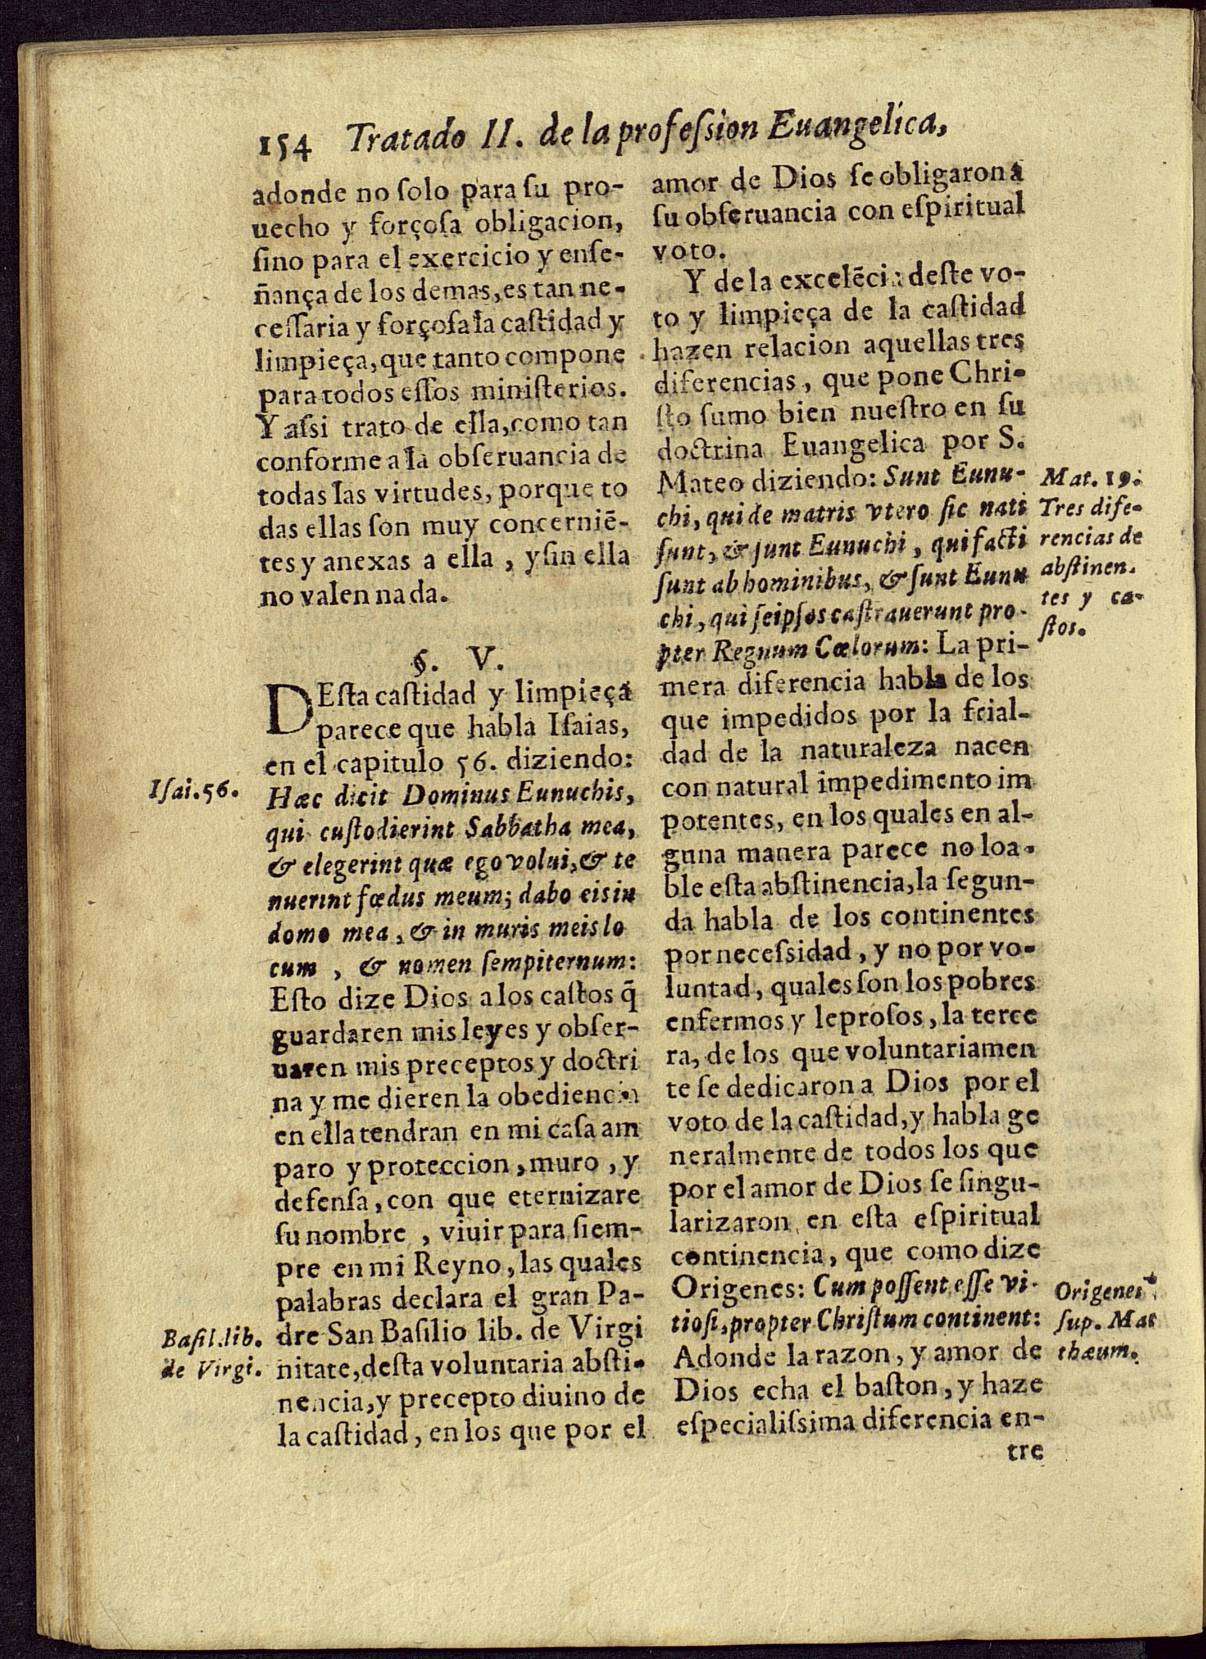 154 Tratado II. de la profeſsion Euangelica,
adonde no ſolo para ſu pro-
uecho y forçoſa obligacion,
ſino para el exercicio y enſe-
ñança de los demas, es tan ne-
ceſſaria y forçoſa la caſtidad y
limpieça, que tanto compone
para todos eſſos miniſterios.
Y aſsi trato de ella, como tan
conforme a la obſeruancia de
todas las virtudes, porque to
das ellas ſon muy concerniē-
tes y anexas a ella , y ſin ella
no valen nada.
§. V.
DEſta caſtidad y limpieça
parece que habla Iſaias,
en el capitulo 56. diziendo:
Iſai.56.
Hæc dicit Dominus Eunuchis,
qui cuſtodierint Sabbatha mea,
& elegerint quæ ego volui, & te
nuerint fœdus meum; dabo eis in
domo mea, & in muris meis lo
cum , & nomen ſempiternum:
Eſto dize Dios a los caſtos q̃
guardaren mis leyes y obſer-
uaren mis preceptos y doctri
na y me dieren la obediencia
en ella tendran en mi caſa am
paro y proteccion, muro , y
defenſa, con que eternizare
ſu nombre , viuir para ſiem-
pre en mi Reyno, las quales
palabras declara el gran Pa-
dre San Baſilio lib. de Virgi
nitate, deſta voluntaria abſti-
nencia, y precepto diuino de
la caſtidad, en los que por el
Baſil.lib.
de Virgi.
amor de Dios ſe obligaron a
ſu obſeruancia con eſpiritual
voto.
Y de la excelēcia deſte vo-
to y limpieça de la caſtidad
hazen relacion aquellas tres
diferencias, que pone Chri-
ſto ſumo bien nueſtro en ſu
doctrina Euangelica por S.
Mateo diziendo: Sunt Eunu-
chi, qui de matris vtero ſic nati
ſunt, & ſunt Eunuchi, qui facti
ſunt ab hominibus, & ſunt Eunu
chi, qui ſeipſos caſtrauerunt pro-
pter Regnum Cœlorum: La pri-
mera diferencia habla de los
que impedidos por la feial-
dad de la naturaleza nacen
con natural impedimento im
potentes, en los quales en al-
guna manera parece no loa-
ble eſta abſtinencia, la ſegun-
da habla de los continentes
por neceſsidad, y no por vo-
luntad, quales ſon los pobres
enfermos y leproſos, la terce
ra, de los que voluntariamen
te ſe dedicaron a Dios por el
voto de la caſtidad, y habla ge
neralmente de todos los que
por el amor de Dios ſe ſingu-
larizaron en eſta eſpiritual
continencia, que como dize
Origenes: Cum poſſent eſſe vi-
tioſi, propter Chriſtum continent:
Adonde la razon, y amor de
Dios echa el baſton, y haze
eſpecialiſsima diferencia en-
tre
Mat. 19.
Tres dife-
rencias de
abſtinen.
tes y ca-
ſtos.
Origenes
ſup. Mat
thæum.